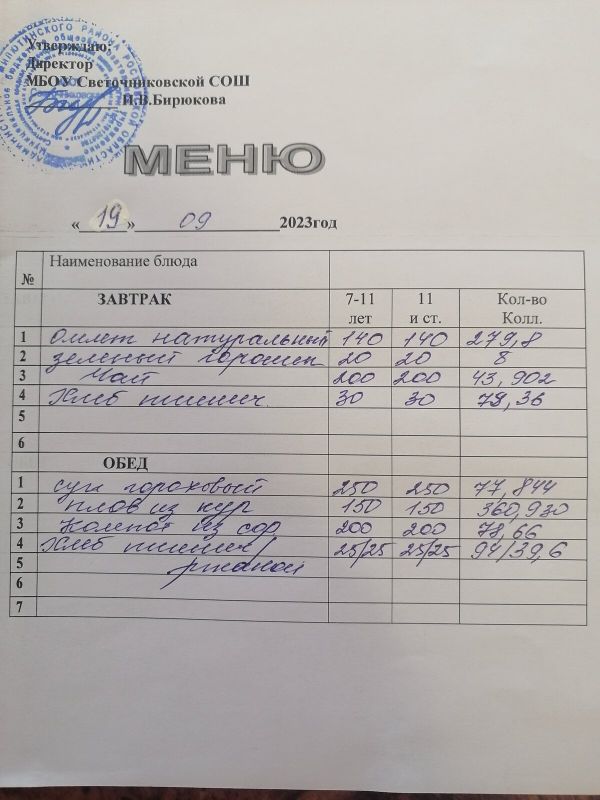 Утверждаю:
Директор
МБОУ Светочниковской СОШ
И.В.Бирюкова
МЕНЮ
« 19 » 09 2023год
№ Наименование блюда
ЗАВТРАК 7-11 лет 11 и ст. Кол-во Колл.
1 Омлет натуральный 140 140 279,8
2 зеленый горошек 20 20 8
3 Чай 200 200 43,902
4 Хлеб пшенич. 30 30 79,36
5
6
ОБЕД
1 суп гороховый 250 250 77,844
2 плов из кур 150 150 360,930
3 Компот из сф 200 200 78,66
4 Хлеб пшенич/ 25/25 25/25 94/39,6
5 ржаной
6
7